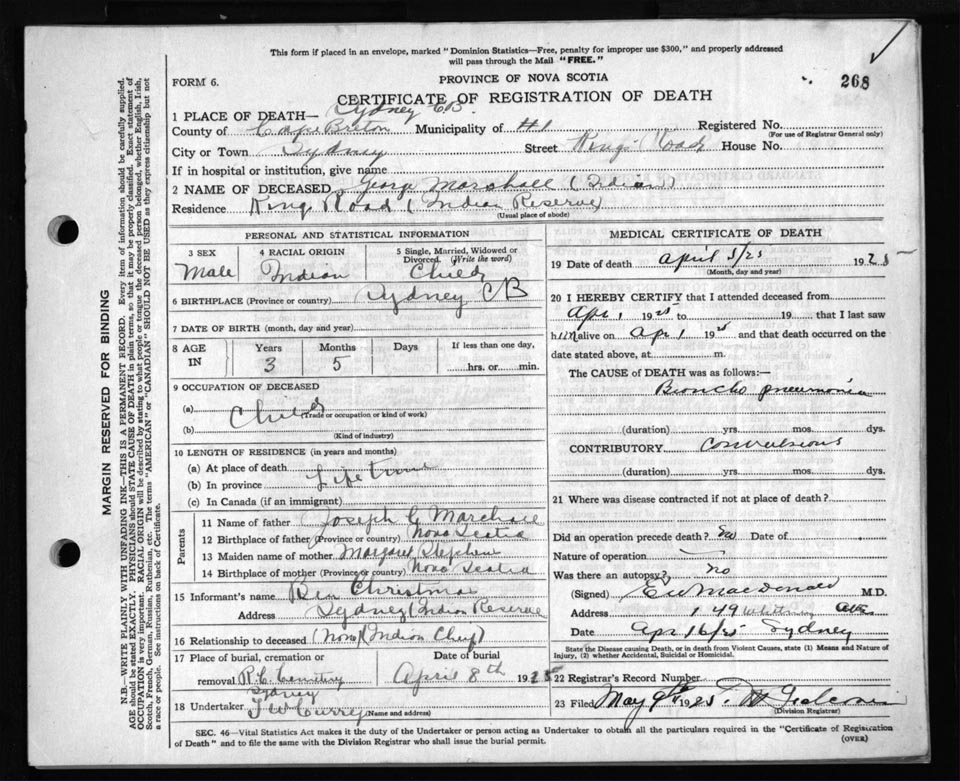 This form if placed in an envelope, marked "Dominion Statistics—Free, penalty for improper use $300," and properly addressed
will pass through the Mail "FREE."
FORM 6.
PROVINCE OF NOVA SCOTIA
268
CERTIFICATE OF REGISTRATION OF DEATH
1 PLACE OF DEATH— Sydney CB.
County of Cape Breton Municipality of #1 Registered No.
(For use of Registrar General only)
City or Town Sydney Street Kings Road House No.
If in hospital or institution, give name
2 NAME OF DECEASED George Marshall (Indian)
Residence King Road (Indian Reserve)
(Usual place of abode)
PERSONAL AND STATISTICAL INFORMATION
3 SEX 4 RACIAL ORIGIN 5 Single, Married, Widowed or Divorced. (Write the word)
Male Indian Child
6 BIRTHPLACE (Province or country) Sydney CB
7 DATE OF BIRTH (month, day and year)
8 AGE IN Years Months Days If less than one day,
3 5 hrs. or min.
9 OCCUPATION OF DECEASED
(a) Child
(Trade or occupation or kind of work)
(b)
(Kind of industry)
10 LENGTH OF RESIDENCE (in years and months)
(a) At place of death
(b) In province Life time
(c) In Canada (if an immigrant)
Parents
11 Name of father Joseph G Marshall
12 Birthplace of father (Province or country) Nova Scotia
13 Maiden name of mother Margaret Stephen
14 Birthplace of mother (Province or country) Nova Scotia
15 Informant's name Ben Christmas
Address Sydney (Indian Reserve
16 Relationship to deceased (None) (Indian Chief)
17 Place of burial, cremation or Date of burial
removal R.C. Cemetery April 8th 1925
Sydney
18 Undertaker T W Curry
(Name and address)
MEDICAL CERTIFICATE OF DEATH
19 Date of death April 5/25 1925
(Month, day and year)
20 I HEREBY CERTIFY that I attended deceased from
Apr 1 1925 to 19 that I last saw
him alive on Apr 1 1925 and that death occurred on the
date stated above, at m.
The CAUSE of DEATH was as follows:—
Broncho pneumonia
(duration) yrs. mos. dys.
CONTRIBUTORY Convulsions
(duration) yrs. mos. dys.
21 Where was disease contracted if not at place of death?
Did an operation precede death? no Date of
Nature of operation
Was there an autopsy? no
(Signed) MacDonald M.D.
Address 149
Date Apr 16/25 Sydney
State the Disease causing Death, or in death from Violent Causes, state (1) Means and Nature of
Injury, (2) whether Accidental, Suicidal or Homicidal.
22 Registrar's Record Number
23 Filed May 9th 1925.
(Division Registrar)
SEC. 46—Vital Statistics Act makes it the duty of the Undertaker or person acting as Undertaker to obtain all the particulars required in the "Certificate of Registration
of Death" and to file the same with the Division Registrar who shall issue the burial permit.
(OVER)
MARGIN RESERVED FOR BINDING
N.B.—WRITE PLAINLY WITH UNFADING INK—THIS IS A PERMANENT RECORD. Every item of information should be carefully supplied.
AGE should be stated EXACTLY. PHYSICIANS should STATE CAUSE OF DEATH in plain terms, so that it may be properly classified. Exact statement of
OCCUPATION is very important. RACIAL ORIGIN will be described by stating to what people or tongue the deceased person belonged, whether English, Irish,
Scotch, French, German, Russian, Ruthenian, etc. The terms "AMERICAN" or "CANADIAN" SHOULD NOT BE USED as they express citizenship but not
a race or people. See instructions on back of Certificate.